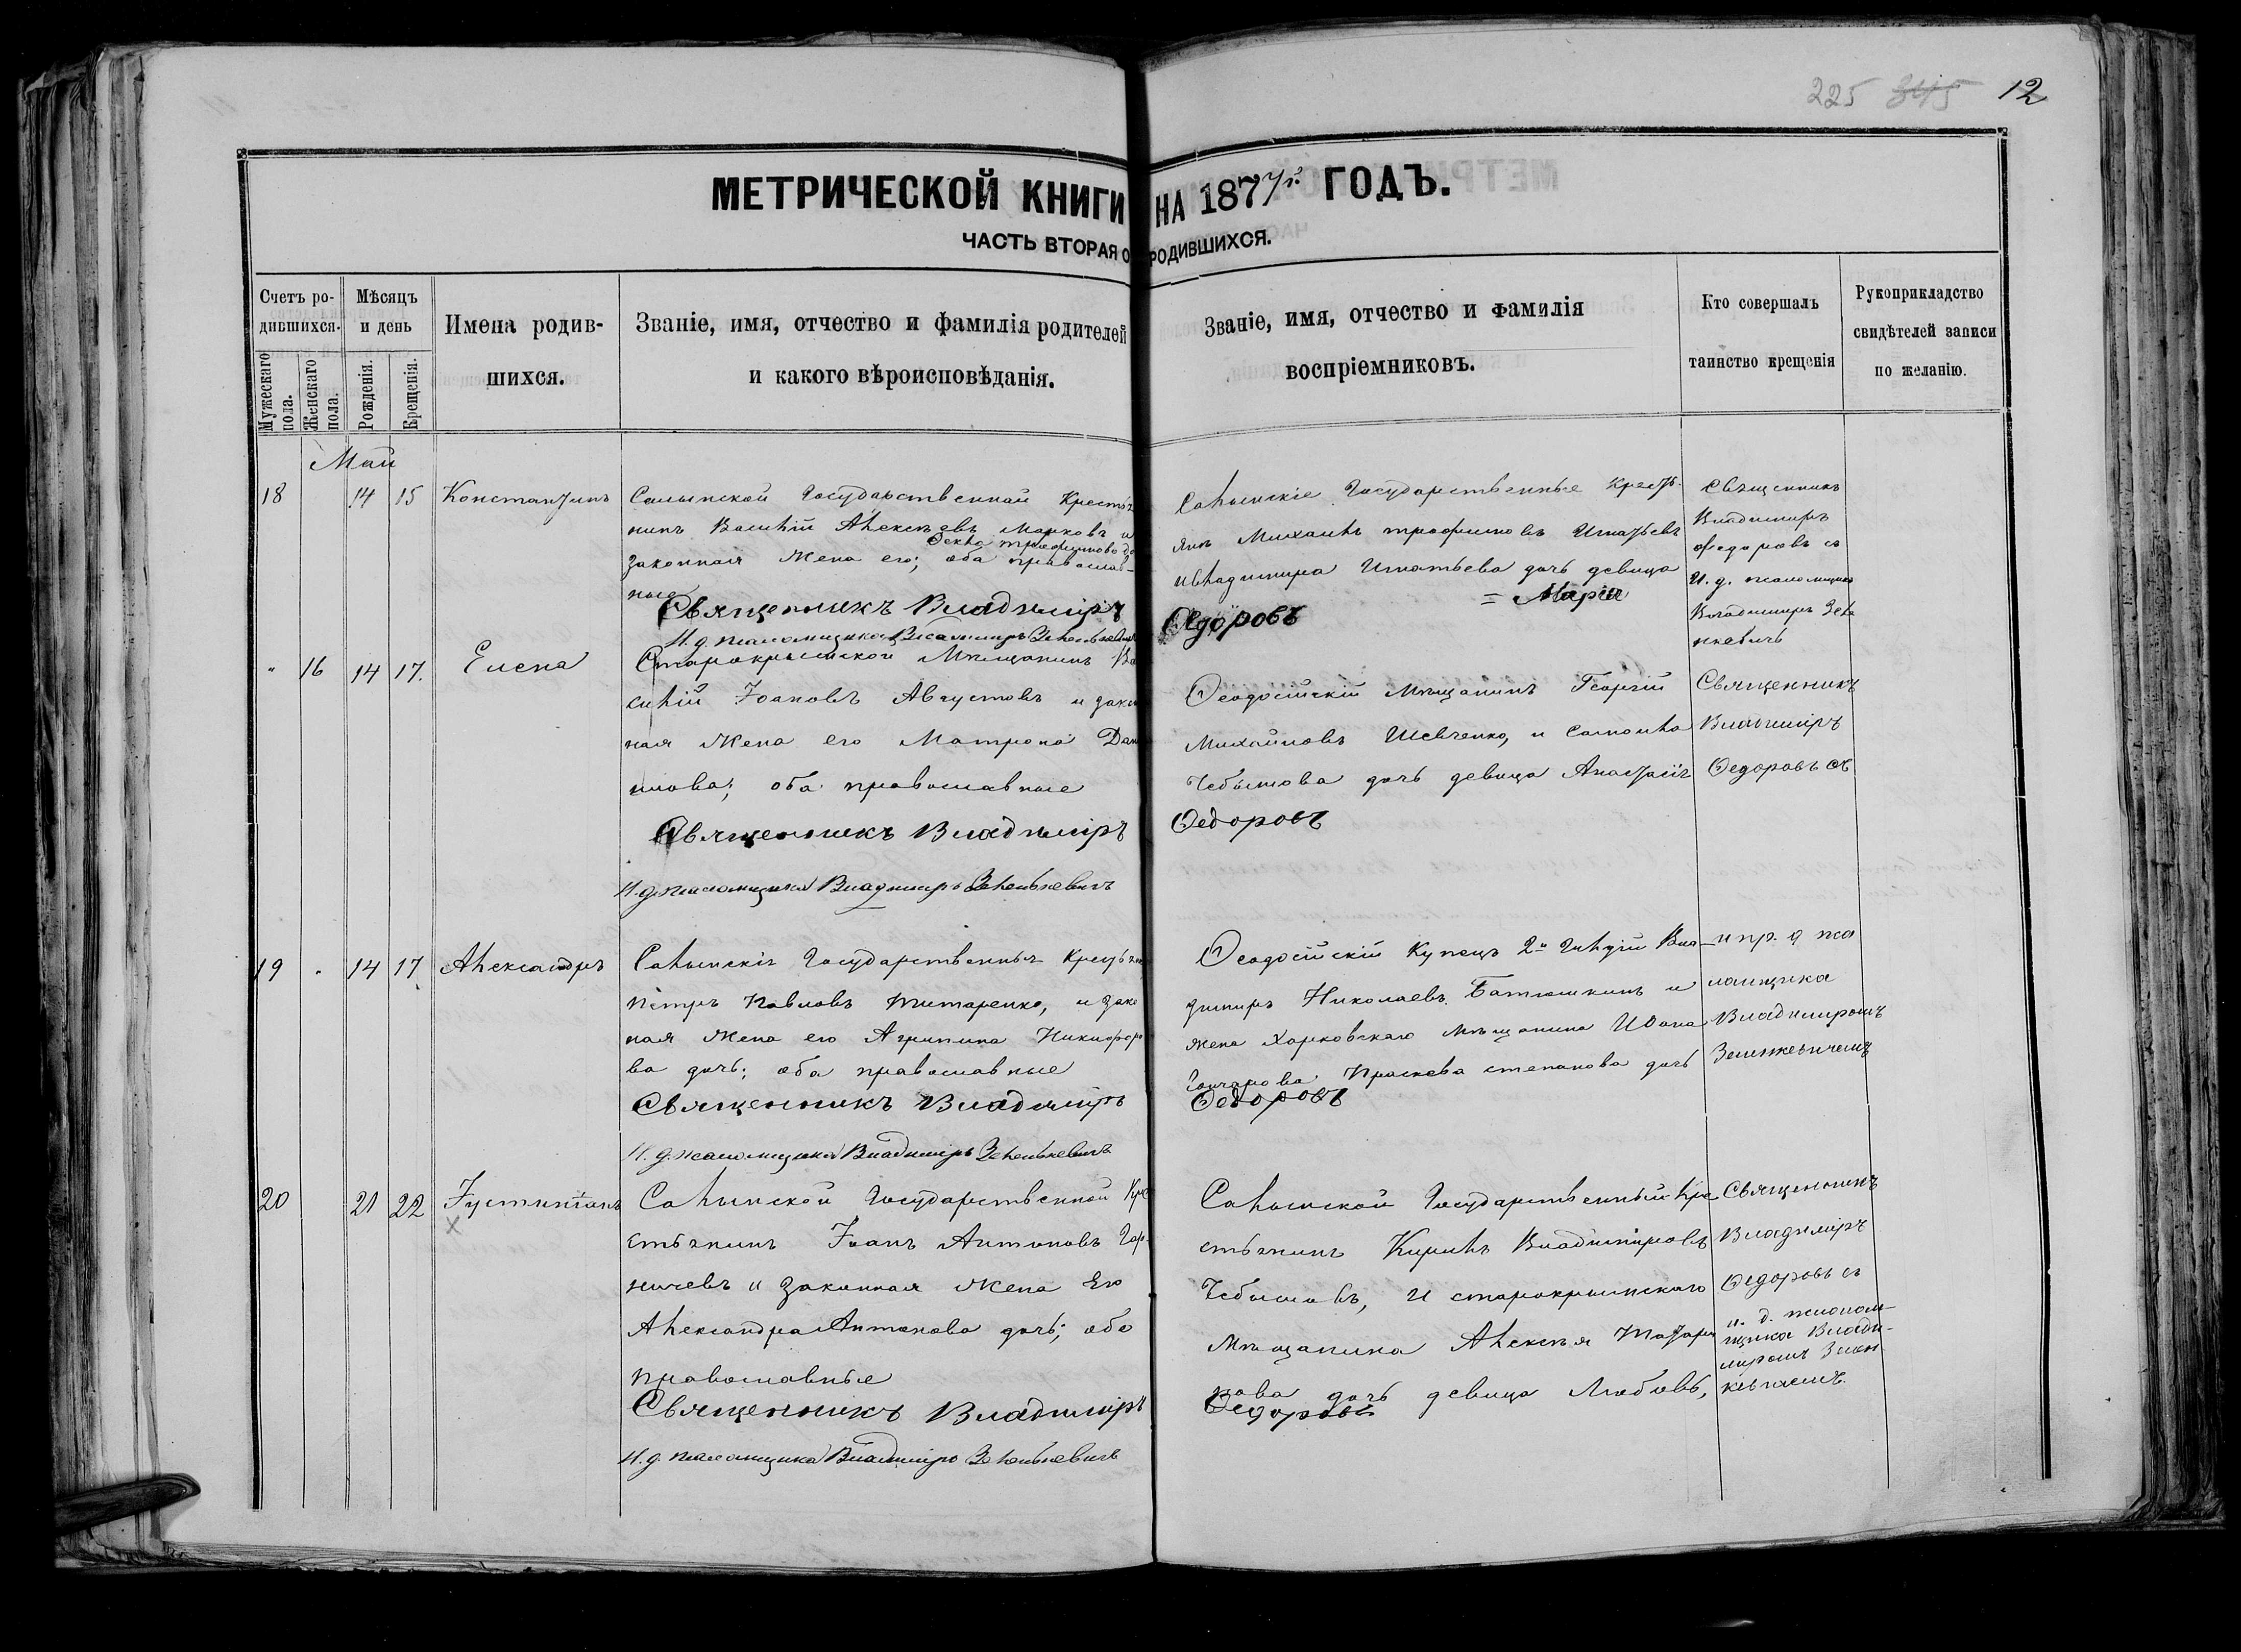 225 345 12
МЕТРИЧЕСКОЙ КНИГИ НА 1877 г. ГОДЪ.
ЧАСТЬ ВТОРАЯ О РОДИВШИХСЯ.
Счетъ ро-
дившихся.
Мужескаго пола.
Женскаго пола.
Мѣсяцъ
и день
Рожденія.
Крещенія.
Имена родив-
шихся.
Званіе, имя, отчество и фамилія родителей
и какого вѣроисповѣданія.
Званіе, имя, отчество и фамилія
воспріемниковъ.
Кто совершалъ
таинство крещенія
Рукоприкладство
свидѣтелей записи
по желанію.
Май
18 14 15 Константинъ
Салынской Государственной Крестья
нинъ Василій Алексѣевъ Марковъ и
Ѳекла трофимова до
законная Жена его; оба православ-
ные
Священникъ Владиміръ
И. д. псаломщика Владимиръ Зеленкевичъ
Салынскіе Государственные Крестья-
Михаилъ трофимовъ Игнатьевъ
Владимира Игнатьева дочь девица
= Марія
Ѳедоровъ
Священникъ
Владимиръ
Федоровъ съ
И. д. псаломщика
Владимиръ Зеле
нкевичъ
" 16 14 17. Елена
Старокрымской Мѣщанинъ Ва
силій Іоановъ Августовъ и закон
ная Жена его Матрона Дан
илова; оба православные
Священникъ Владиміръ
И. д. псаломщика Владимиръ Зеленкевичъ
Ѳеодосійскій Мѣщанинъ Георгій
Михайловъ Шевченко, и
Чебышова дочь девица Анастасія
Ѳедоровъ
Священникъ
Владиміръ
Ѳедоровъ съ
19 " 14 17 Александръ
Салынскія Государственныя Крестьяне
Петръ Павловъ Титаренко, и зако
ная Жена его Агрипина Никифоро
ва дочь; оба православные
Священникъ Владиміръ
И. д. псаломщика Владимиръ Зеленкевичъ
Ѳеодосійскій Купецъ 2й Гильдіи Вла-
димиръ Николаевъ Батюшкинъ и
жена Харковскаго мѣщанина Ивана
Гончарова Праскева степанова дочь
Ѳедоровъ
и пр. д пса
ломщика
Владимиромъ
Зеленкевичемъ
20 21 22 Іустиніанъ
х
Салынской Государственной Кре
стьянинъ Іоанъ Антоновъ Гор-
ничевъ и законная Жена Его
Александра Антонова дочь; оба
православные
Священникъ Владиміръ
И. д. псаломщика Владиміръ Зеленкевичъ
Салынской Государственный Кре
стьянинъ Кирилъ Владимировъ
Чебышовъ, И старокрымскаго
Мѣщанина Алексѣя Татари
нова дочь девица Любовь,
Ѳедоровъ
Священникъ
Владиміръ
Ѳедоровъ съ
и. д. псалом-
щика Влади-
миромъ Зелен
кевичемъ.